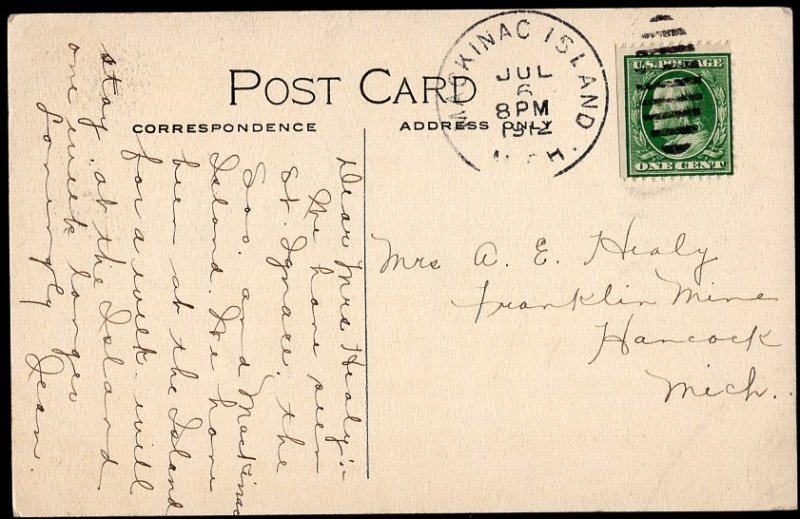 POST CARD
CORRESPONDENCE
ADDRESS ONLY
MACKINAC ISLAND.
JUL
6
8PM
1912
MICH.
U.S. POSTAGE
ONE CENT
Mrs A. E. Healy
Franklin Mine
Hancock
Mich.
Dear Mrs Healy:-
We have seen
St. Ignace, the
Soo. and Mackinac
Island. We have
been at the Island
for a week. will
stay at the Island
one week longer
Lovingly
Jean.